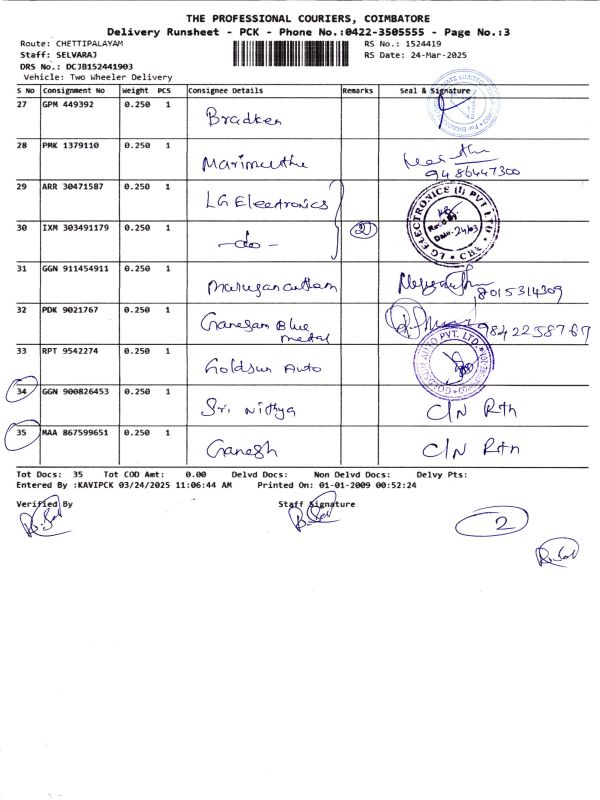 THE PROFESSIONAL COURIERS, COIMBATORE
Delivery Runsheet - PCK - Phone No.:0422-3505555 - Page No.:3
Route: CHETTIPALAYAM RS No.: 1524419
Staff: SELVARAJ RS Date: 24-Mar-2025
DRS No.: DCJB152441903
Vehicle: Two Wheeler Delivery
S No Consignment No Weight PCS Consignee Details Remarks Seal & Signature
27 GPM 449392 0.250 1 Bradken
28 PMK 1379110 0.250 1 Marimuthu 9486447300
29 ARR 30471587 0.250 1 LG Electronics
LG ELECTRONICS (I) PVT LTD
24/03
30 IXM 303491179 0.250 1 -do- 2
31 GGN 911454911 0.250 1 Muruganantham 8015314309
32 PDK 9021767 0.250 1 Ganesan Blue Metal 9842258767
33 RPT 9542274 0.250 1 Goldsun Auto
GOLDSUN AUTO PVT. LTD
34 GGN 900826453 0.250 1 Sri Nithya C/N Rtn
35 MAA 867599651 0.250 1 Ganesh C/N Rtn
Tot Docs: 35 Tot COD Amt: 0.00 Delvd Docs: Non Delvd Docs: Delvy Pts:
Entered By :KAVIPCK 03/24/2025 11:06:44 AM Printed On: 01-01-2009 00:52:24
Verified By Staff Signature
2